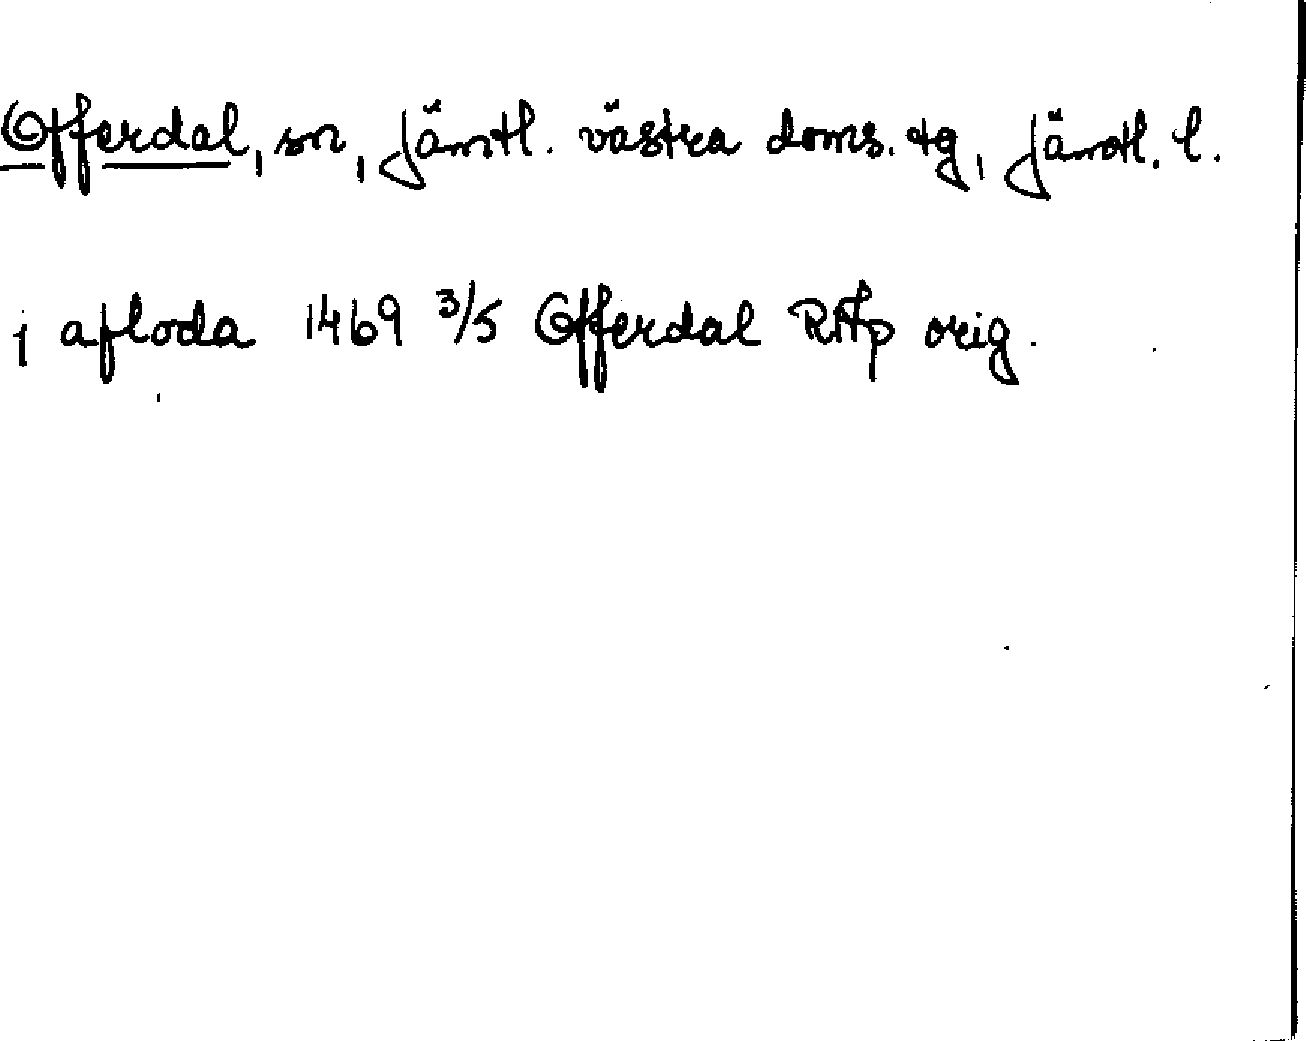 Offerdal, sn, Jämtl. västra doms. tg, Jämtl. l.
j afloda 1469 3/5 Offerdal RAp orig.